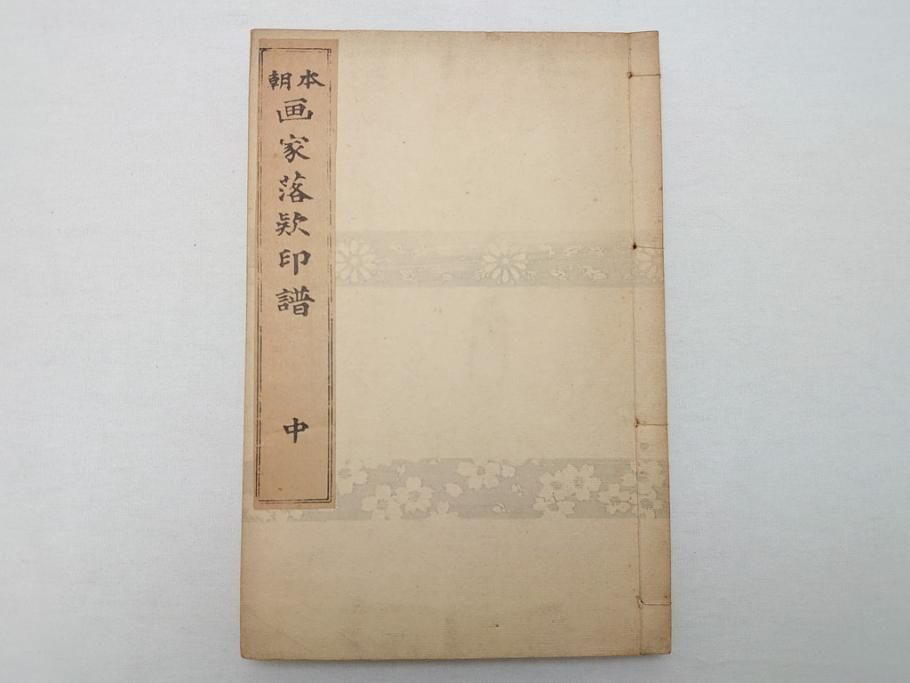 本朝
画家落款印譜
中